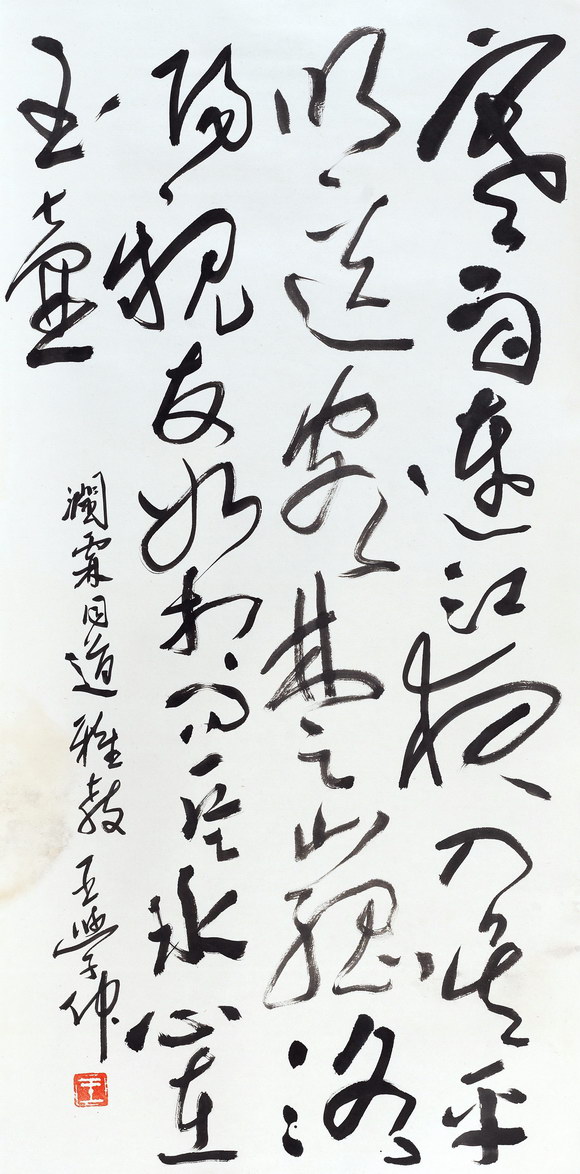 寒雨連江夜入吳平
明送客楚山孤洛
陽親友如相問一片冰心在
玉壺
潤霖同道雅教 王學仲
王